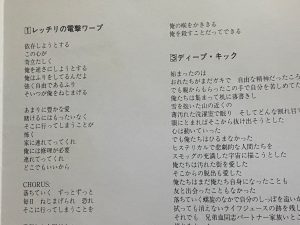 1 レッチリの電撃ワープ
依存しようとする
この心が
苛立たしく
俺を逃さにしようとする
俺はふりをしてるんだよ
強く自由であるふり
そいつが俺をねじまげる
あまりに豊かな愛
賭けるにはもったいなく
そこに行ってしまうことが
怖く
家に連れてってくれ
俺には修理が必要
連れてってくれ
どこでもいいから
CHORUS:
落ちていく ずっとずっと
毎日 ねじまげられ 恐れ
そこに行ってしまうことを
俺の喉をかききる
俺を殺すことだってできる
3 ディープ・キック
始まったのは
おれたちがまだガキで 自由な精神だったころ
でも親からもらったこの手で自分を苦しめてた
俺たちは集まって机に落書きし
雪を抱いた山の近くの
薄汚れた洗濯室で眠り そしてどんな割れ目
眼にとまればそこから抜け出そうとした
心は動いていった
でも俺たちはひるまなかった
ヒステリカルで悲劇的な人間たちを
スモッグの充満した宇宙に描こうとした
俺たちは汚れた街を愛した
そこからの脱出も愛した
俺たちはまだ俺たち自身になったことも
友と出会ったこともなかった
落ちていく螺旋のなかで自分のしっぽを追いか
拭っても消えないライフジュースの跡を残し
それでも 兄弟血同志パートナー家族いとこ